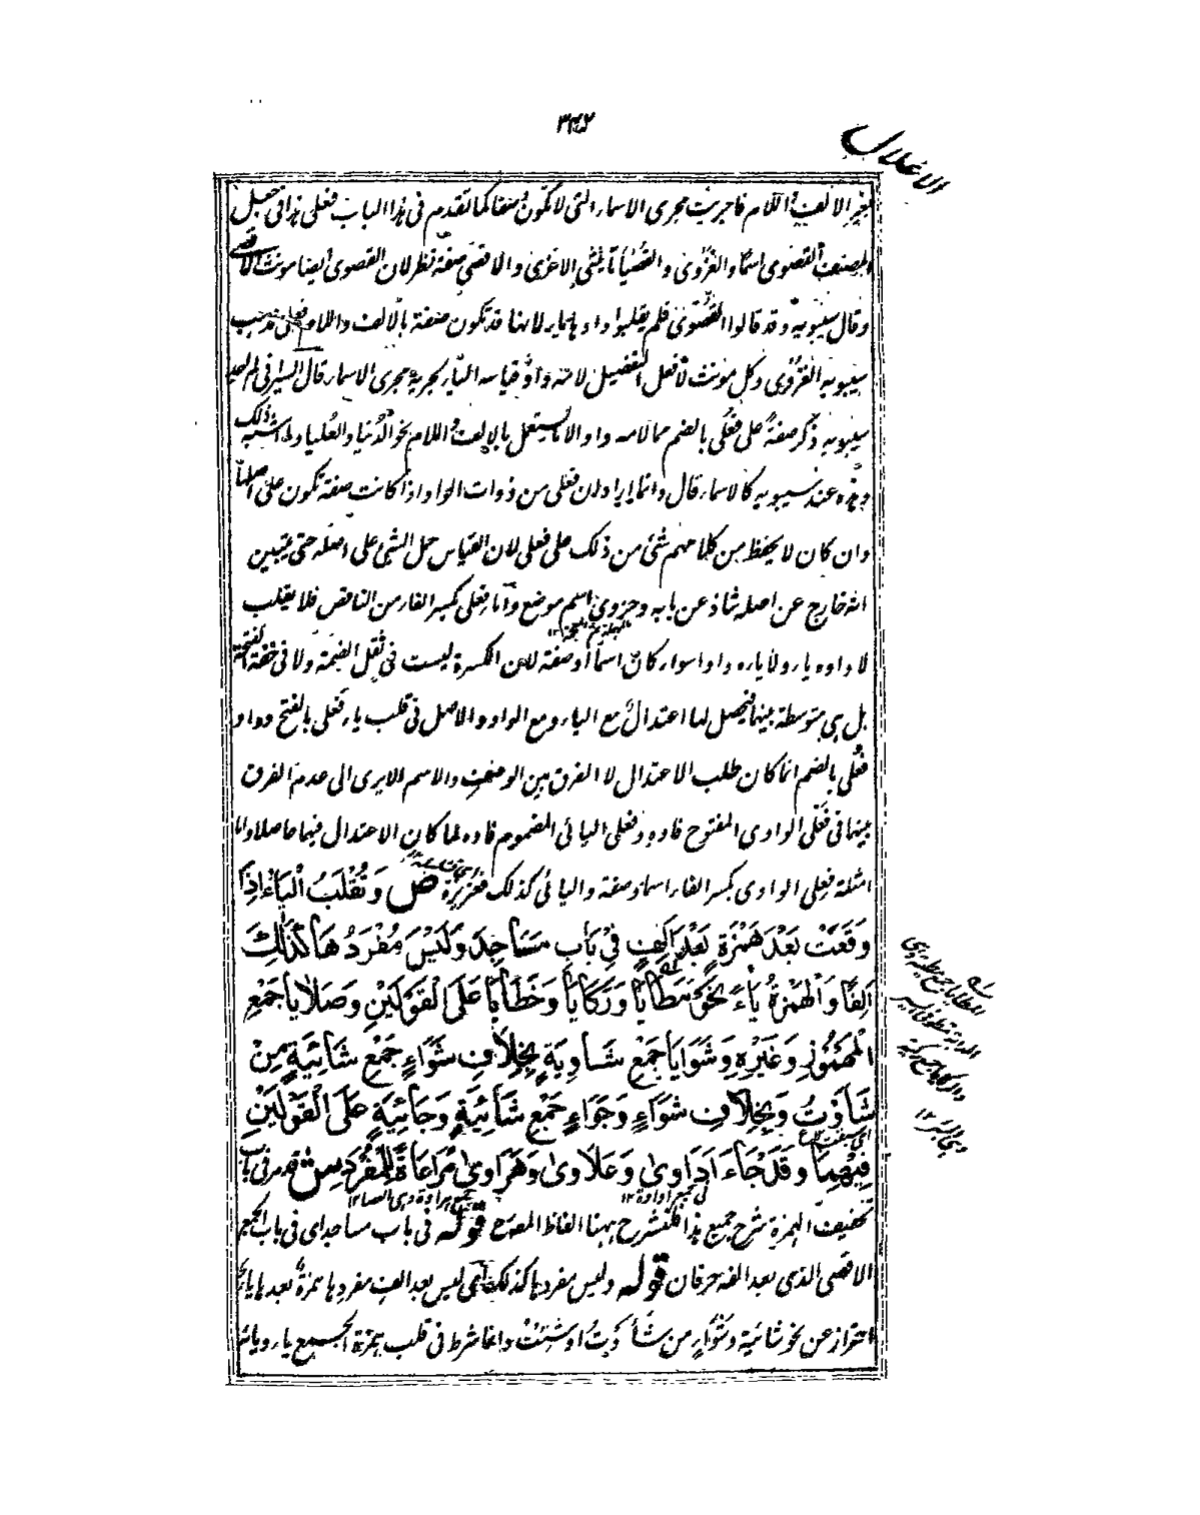 ٣٤٢
الاعلال
بغير الالف واللام فاجريت مجرى الاسماء التى لا تكون وصفا كما تقدم فى هذا الباب فعلى هذا فى جعل
المصنف القصوى اسمًا والغُزوى والقُضيا تانيثى الاغزى والاقضى صفة نظر لان القصوى ايضا مونث الاقصى
وقال سيبويه وقد قالوا القُصْوى فلم يقلبوا واوها ياء لانها قد تكون صفة بالالف واللام فعلى مذهب
سيبويه الغُزْوى وكل مونث لأفعل التفضيل لامه واوٌ قياسه الياء لجريه مجرى الاسماء قال السيرافى لم اجد
سيبويه ذكر صفةً على فُعْلى بالضم مما لامه واو الا ما يستعمل بالالف واللام نحو الدُّنيا والعُليا وما اشبه ذلك
وهذه عند سيبويه كالاسماء قال وانما اراد ان فعلى من ذوات الواو اذا كانت صفة تكون على اصلها
وان كان لا يحفظ من كلامهم شئ من ذلك على فعلى لان القياس حمل الشئ على اصله حتى يتبين
انه خارج عن اصله شاذ عن بابه وحزوى اسم موضع وأما فِعلى بكسر الفاء من الناقص فلا يقلب
لا واوه ياء ولا ياءه واوا سواء كان اسما او صفة لان الكسرة ليست فى ثقل الضمة ولا فى خفة الفتحة
بل هى متوسطة بينهما فيحصل لها اعتدالٌ مع الياء ومع الواو والاصل فى قلب ياء فَعلى بالفتح وواو
فُعْلى بالضم انما كان طلب الاعتدال لا الفرق بين الوصف والاسم الا يرى الى عدم الفرق
بينهما فى فَعْلى الواوى المفتوح فاؤه وفعلى اليائى المضموم فاؤه لما كان الاعتدال فيهما حاصلا واما
امثلة فِعلى الواوى بكسر الفاء اسما وصفة واليائى كذلك فعزيزة ص وَتُقْلَبُ الْيَاءُ اِذَا
وَقَعَتْ بَعْدَ هَمْزَةٍ بَعْدَ اَلِفٍ فِيْ بَابِ مَسَاجِدَ وَلَيْسَ مُفْرَدُهَا كَذٰلِكَ
اَلِفًا وَالْهَمْزَةُ يَاءً نَحْوُ مَطَايَا وَرَكَايَا وَخَطَايَا عَلَى الْقَوْلَيْنِ وَصَلَايَا جَمْعِ
الْمَهْمُوْزِ وَغَيْرِهِ وَشَوَايَا جَمْعِ شَاوِيَةٍ بِخِلَافِ شَوَاءٍ جَمْعِ شَائِيَةٍ مِنْ
شَأَوْتُ وَبِخِلَافِ شَوَاءٍ وَجَوَاءٍ جَمْعِ شَائِيَةٍ وَجَائِيَةٍ عَلَى الْقَوْلَيْنِ
فِيْهِمَا وَقَدْ جَاءَ اَدَاوىٰ وَعَلَاوىٰ وَهَرَاوىٰ مُرَاعَاةً لِلْمُفْرَدِ ش قد مر فى باب
تخفيف الهمزة شرح جميع هذا فلنشرح ههنا الفاظ المصنف قوله فى باب مساجد اى فى باب الجمع
الاقصى الذى بعد الفه حرفان قوله وليس مفردها كذلك اى ليس بعد الف مفردها همزةٌ بعدها ياءٌ
احتراز عن نحو شائية وشواءٍ من شأوتُ او شئت وانما شرط فى قلب همزة الجمع ياء ويائه